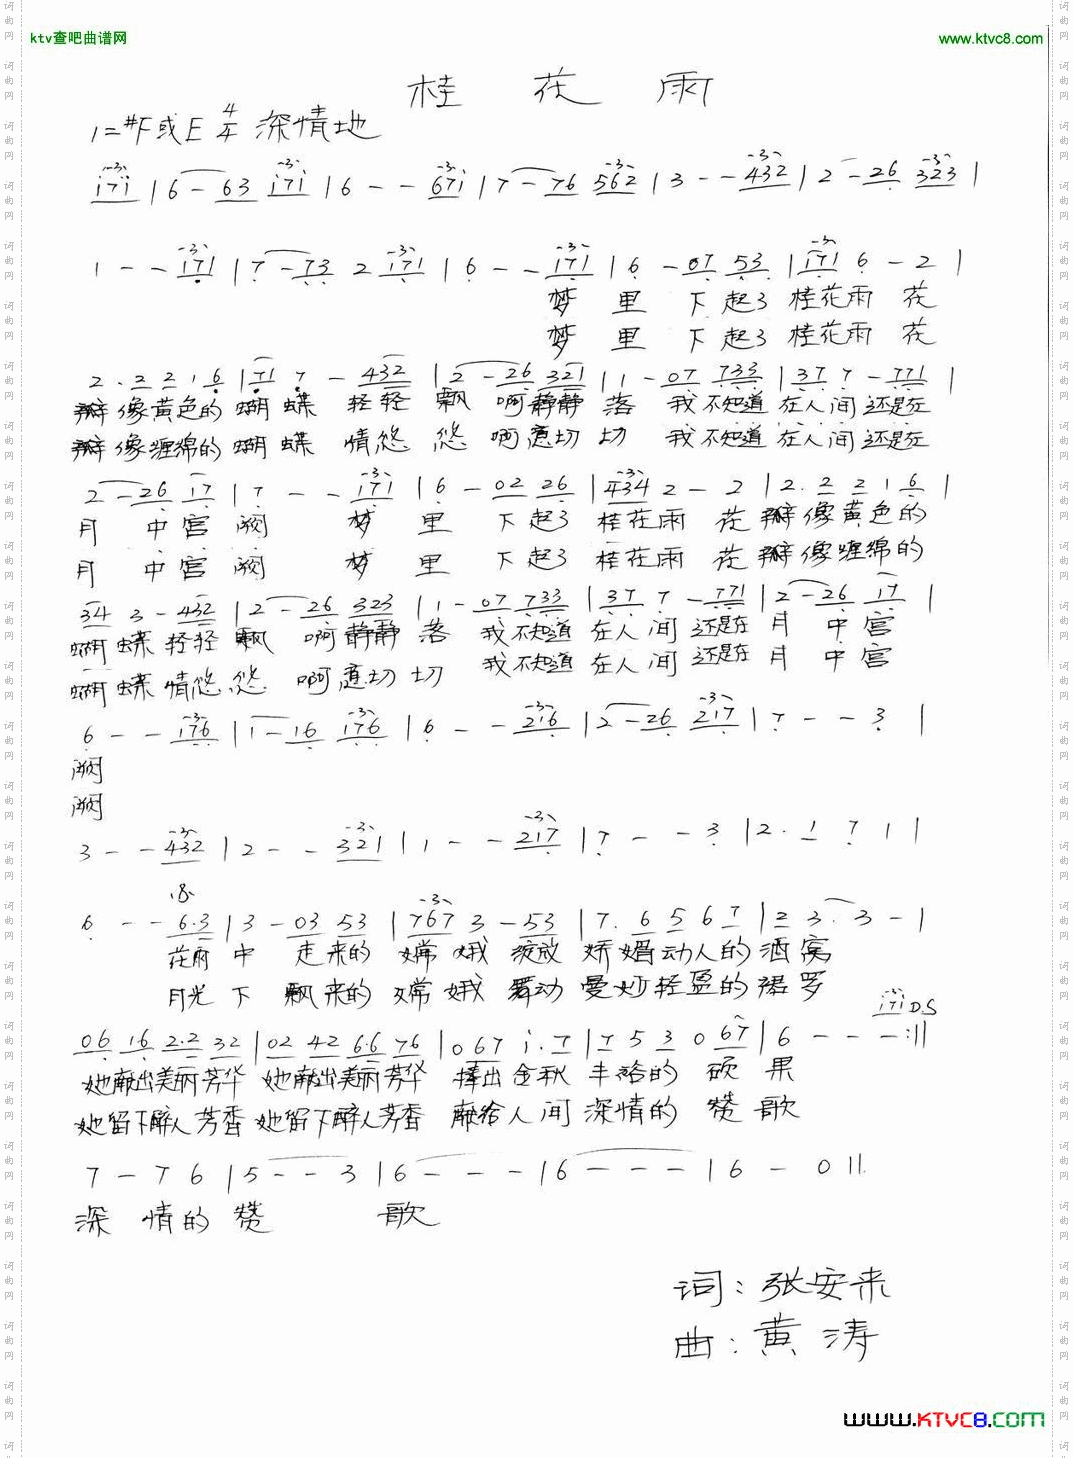 ktv查吧曲谱网
www.ktvc8.com
桂 花 雨
1=#F或E 4/4 深情地
i7i | 6 - 63 i7i | 6 - - 671 | 7 - 76 562 | 3 - - 432 | 2 - 26 323 |
1 - - 171 | 7 - 73 2 171 | 6 - - 171 | 6 - 07 53 | 171 6 - 2 |
梦 里 下起了 桂花雨 花
梦 里 下起了 桂花雨 花
2. 2 2 1 6 | 71 7 - 432 | 2 - 26 321 | 1 - 07 733 | 37 7 - 771 |
瓣像黄色的 蝴蝶 轻轻 飘 啊静静 落 我不知道 在人间 还是在
瓣像缠绵的 蝴蝶 情悠 悠 啊意切 切 我不知道 在人间 还是在
2 - 26 17 | 7 - - 171 | 6 - 02 26 | 434 2 - 2 | 2. 2 2 1 6 |
月 中宫 阙 梦 里 下起了 桂花雨 花 瓣像黄色的
月 中宫 阙 梦 里 下起了 桂花雨 花 瓣像缠绵的
34 3 - 432 | 2 - 26 323 | 1 - 07 733 | 37 7 - 771 | 2 - 26 17 |
蝴蝶 轻轻 飘 啊静静 落 我不知道 在人间 还是在 月 中宫
蝴蝶 情悠 悠 啊意切 切 我不知道 在人间 还是在 月 中宫
6 - - 176 | 1 - 16 176 | 6 - - 216 | 2 - 26 217 | 7 - - 3 |
阙
阙
3 - - 432 | 2 - - 321 | 1 - - 217 | 7 - - 3 | 2. 1 7 1 |
6 - - 6.3 | 3 - 03 53 | 767 3 - 53 | 7. 6 5 6 7 | 2 3. 3 - |
花雨 中 走来的 嫦娥 绽放 娇媚动人的 酒窝
月光 下 飘来的 嫦娥 舞动 曼妙轻盈的 裙罗
06 16 2.2 32 | 02 42 6.6 76 | 0 67 i. 7 | 7 5 3 0 67 | 6 - - - i7i D.S :||
她献出美丽芳华 她献出美丽芳华 捧出 金秋 丰硌的 硕 果
她留下醉人芳香 她留下醉人芳香 献给人间 深情的 赞 歌
7 - 7 6 | 5 - - 3 | 6 - - - | 6 - - - | 6 - 0 ||
深 情的 赞 歌
词：张安来
曲：黄涛
www.KTVC8.com